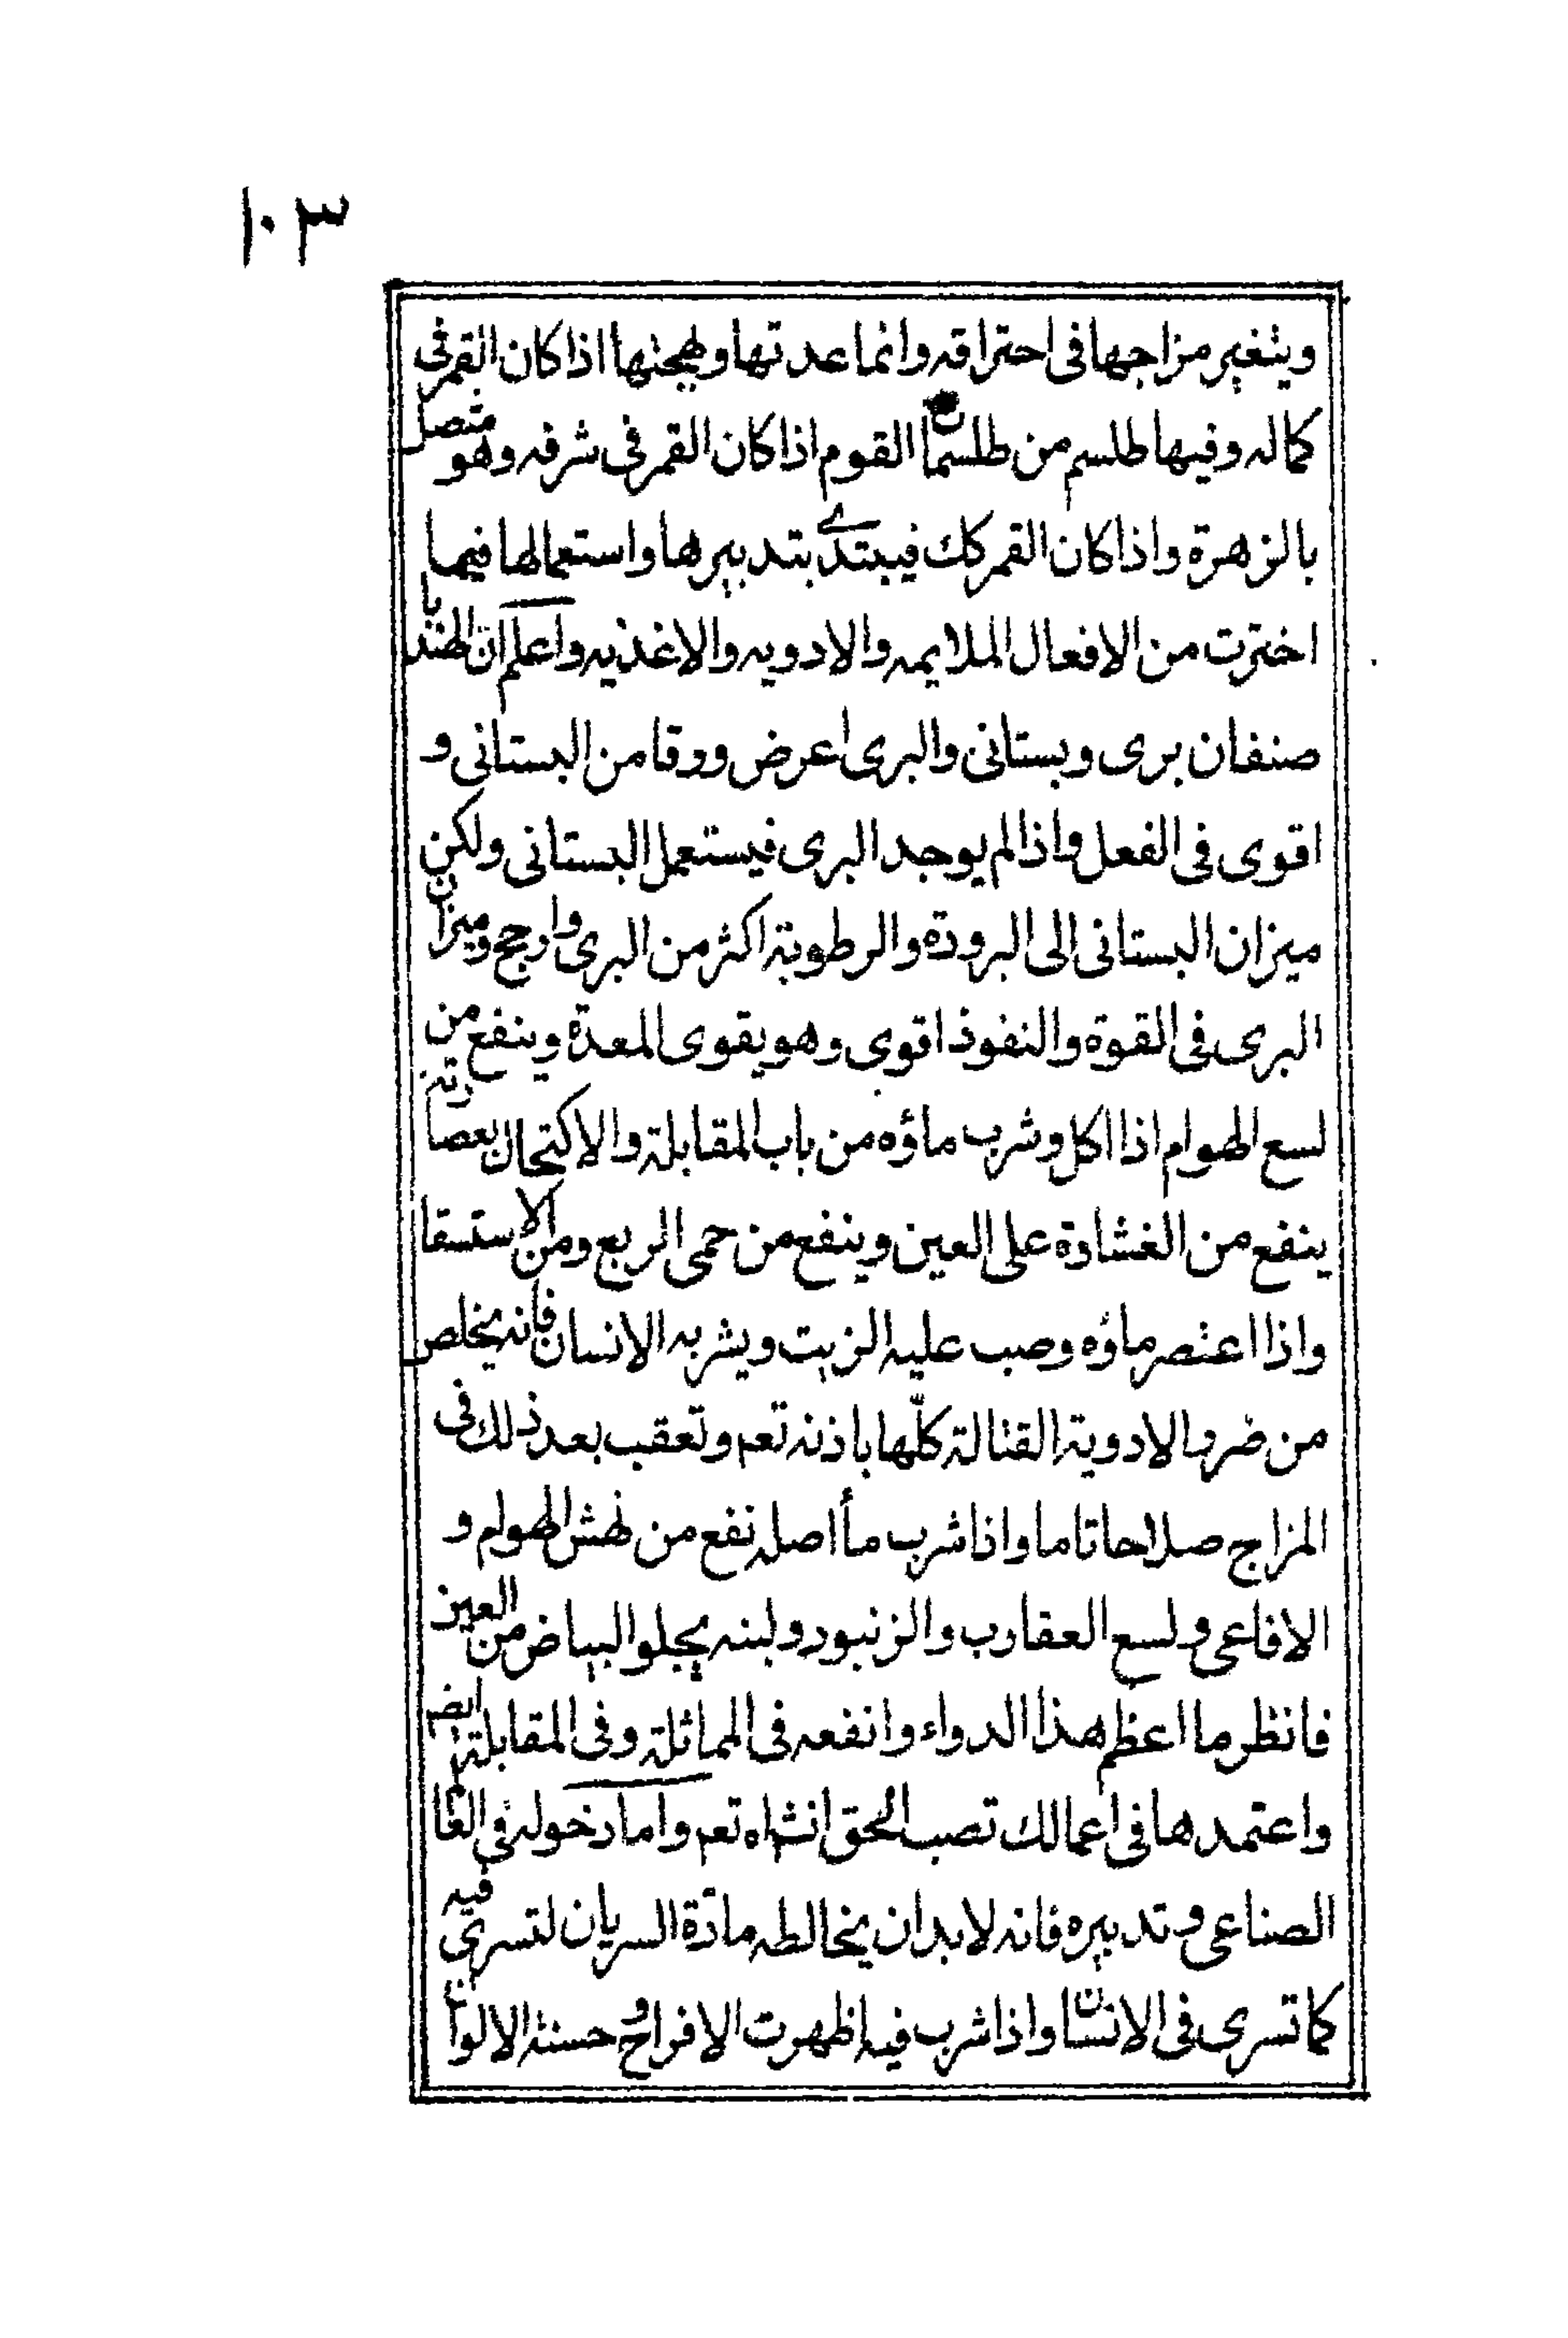 ١٠٣
ويتغير مزاجها فى احتراقه وانما عدتها وطجنها اذا كان القمر فى
كماله وفيها طلسم من طلسمات القوم اذا كان القمر فى شرفه وهو متصل
بالزهرة واذا كان القمر كك فيبتدى بتدبيرها واستعمالها فيما
اخترت من الافعال الملايمه والادويه والاغذيه واعلم ان الهندبا
صنفان برى وبستانى والبرى اعرض ورقا من البستانى و
اقوى فى الفعل واذا لم يوجد البرى فيستعمل البستانى ولكن
ميزان البستانى الى البرودة والرطوبة اكثر من البرى وارجح وميزان
البرى فى القوة والنفوذ اقوى وهو يقوى المعدة وينفع من
لسع الهوام اذا اكل وشرب ماؤه من باب المقابلة والاكتحال بعصارته
ينفع من الغشاوة على العين وينفع من حمى الربع ومن الاستسقا
واذا اعتصر ماؤه وصب عليه الزيت ويشربه الانسان فانه يخلص
من ضرر الادوية القتالة كلّها باذنه تعم وتعقب بعد ذلك فى
المزاج صلاحا تاما واذا شرب مأ اصله نفع من نهش الهوام و
الافاعى ولسع العقارب والزنبور ولبنه يجلو البياض من العين
فانظر ما اعظم هذا الدواء وانفعه فى المماثلة وفى المقابلة ايضا
واعتمدها فى اعمالك تصب الحق انشاه تعم واما دخوله فى العا
الصناعى وتدبيره فانه لابد ان يخالطه مادّة السريان لتسرى فيه
كما تسرى فى الانسان واذا شرب فيه اظهرت الافراخ حسنة الالوان